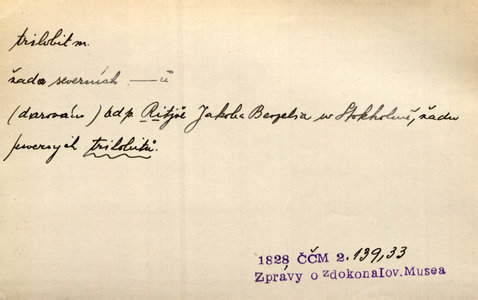 trilobit m.
řada severních — ů
(darováno) od p. Ritjře Jakoba Berzelia w Stokholmě, řadu
severnjch trilobitů.
1828 ČČM 2. 139,33
Zprávy o zdokonalov. Musea